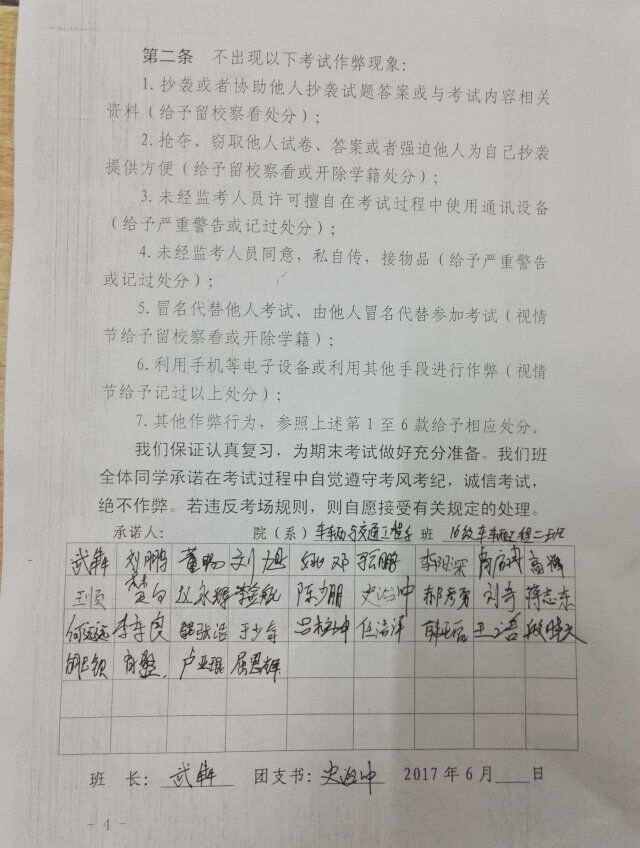 第二条 不出现以下考试作弊现象:
1. 抄袭或者协助他人抄袭试题答案或与考试内容相关
资料(给予留校察看处分);
2. 抢夺、窃取他人试卷、答案或者强迫他人为自己抄袭
提供方便(给予留校察看或开除学籍处分);
3. 未经监考人员许可擅自在考试过程中使用通讯设备
(给予严重警告或记过处分);
4. 未经监考人员同意,私自传,接物品(给予严重警告
或记过处分);
5. 冒名代替他人考试、由他人冒名代替参加考试(视情
节给予留校察看或开除学籍);
6. 利用手机等电子设备或利用其他手段进行作弊(视情
节给予记过以上处分);
7. 其他作弊行为,参照上述第 1 至 6 款给予相应处分。
我们保证认真复习,为期末考试做好充分准备。我们班
全体同学承诺在考试过程中自觉遵守考风考纪,诚信考试,
绝不作弊。若违反考场规则,则自愿接受有关规定的处理。
承诺人: 院(系)车辆与交通工程学 班 16级车辆工程二班
武犇 刘鹏 刘旭 李阳深
赵永辉 陈少朋 史治中 郝彦勇 刘奇 蒋志东
何远远 李存良 于少华 任浩洋 王浩
卢亚琨 屈思辉
班 长: 武犇 团支书: 史治中 2017 年 6 月 日
- 4 -